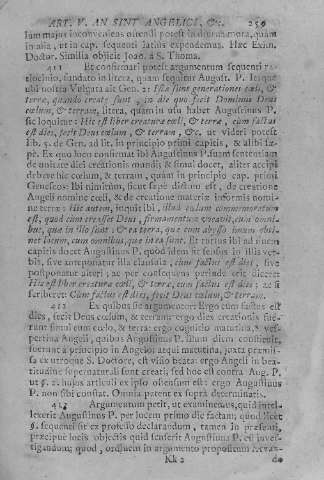 ART. V. AN SINT ANGELICI, &c. 259
lum majus inconveniens ostendi potest in diurna mora, quàm
in alia, ut in cap. sequenti latiùs expendemus. Hæc Exim.
Doctor. Similia objicit Joan. à S. Thoma.
411 Et confirmari potest argumentum sequenti ra-
tiocinio, fundato in litera, quam sequitur August. P. Itaque
ubi nostra Vulgata ait Gen. 2: Istæ sunt generationes cœli, &
terræ, quando creatæ sunt, in die quo fecit Dominus Deus
cœlum, & terram, litera, quam in usu habet Augustinus P.
sic loquitur: Hic est liber creaturæ cœli, & terræ, cum factus
est dies, fecit Deus cœlum, & terram, &c. ut videri potest
lib. 5. de Gen. ad lit. in principio primi capitis, & alibi sæ-
pè. Ex quo loco confirmat ibi Augustinus P. suam sententiam
de unitate diei creationis mundi; & simul docet, aliter accipi
debere hîc cœlum, & terram, quàm in principio cap. primi
Geneseos: Ibi nimirùm, sicut sæpè dictum est, de creatione
Angeli nomine cœli, & de creatione materiæ informis nomi-
ne terræ: Hic autem, inquit ibi, illud cœlum commemoratum
est, quod cùm creasset Deus, firmamentum vocavit, cum omni-
bus, quæ in illo sunt; & ea terra, quæ cum abysso imum obti-
net locum, cum omnibus, quæ in ea sunt. Et rursus ibi ad finem
capitis docet Augustinus P. quòd idem sit sensus in illis ver-
bis, sive anteponatur illa clausula, cùm factus est dies, sive
postponatur alteri; ac per consequens perinde esse diceret
Hic est liber creaturæ cœli, & terræ, cùm factus est dies; ac si
scriberet: Cùm factus est dies, fecit Deus cœlum, & terram.
412 Ex quibus sic argumentor: Ergo cùm factus est
dies, fecit Deus cœlum, & terram: ergo dies creationis fue-
runt simul cum cœlo, & terra: ergo cognitio matutina, & ves-
pertina Angeli, quibus Augustinus P. illum diem constituit,
fuerunt à principio Angelo: atqui matutina, juxta præmis-
sa ex utroque S. Doctore, est visio beata: ergo Angeli in bea-
titudine supernaturali sunt creati, sed hoc est contra Aug. P.
ut §. 2. hujus articuli ex ipso ostensum est: ergo Augustinus
P. non sibi constat. Omnia patent ex suprà determinatis.
413 Argumentum petit, ut examinemus, quid intel-
lexerit Augustinus P. per lucem primo die factam; quod licèt
§. sequenti sit ex professo declarandum, tamen in præsenti,
præcipuè locis objectis quid senserit Augustinus P. est inves-
tigandum; quod, ordinem in argumento propositum servan-
Kk 2 do